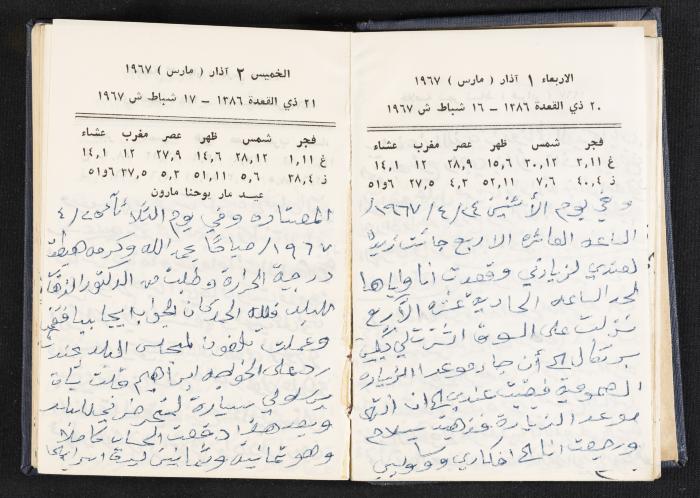 الاربعاء ١ آذار ( مارس ) ١٩٦٧
٢٠ ذي القعدة ١٣٨٦ – ١٦ شباط ش ١٩٦٧
فجر شمس ظهر عصر مغرب عشاء
غ ٣,١١ ٣٠,١٢ ١٥,٦ ٢٨,٩ ١٢ ١٤,١
ز ٤٠,٤ ٧,٦ ٥٢,١١ ٤,٣ ٢٧,٥ ٦و٥١
وفي يوم الأثنين ٢٤/٤/١٩٦٧/
الساعه العاشره الا ربع جائت
لعندي لزيارتي وقعدت انا واياها
لحد الساعه الحادية عشره الا ربع
نزلت على السوق اشترت لي كيلين
برتقال الى أن جاء موعد الزيارة
العمومية فضيت عندي الى ان انتهى
موعد الزيارة فذهبت بسلام
ورجعت انا الى افكاري ووساويسي
الخميس ٢ آذار ( مارس ) ١٩٦٧
٢١ ذي القعدة ١٣٨٦ – ١٧ شباط ش ١٩٦٧
فجر شمس ظهر عصر مغرب عشاء
غ ١,١١ ٢٨,١٢ ١٤,٦ ٢٧,٩ ١٢ ١٤,١
ز ٢٨,٤ ٥,٦ ٥١,١١ ٥,٣ ٢٧,٥ ٦و٥١
عيد مار يوحنا مارون
المعتاده وفي يوم الثلاثاء ٢٥/٤
١٩٦٧/ صباحًا بحمد الله وكرمه هبطت
درجة الحرارة وطلبت من الدكتور
للبلد فلله الحمد كان الجواب
وعملت تلفون لمجلس البلد عندنا
رد على الخواجه ابراهيم قلت له
يرسلولي سيارة
وبعد هذا دفعت الحساب كاملا
وهو ثمانية وثمانين ليرة اسرائيلية